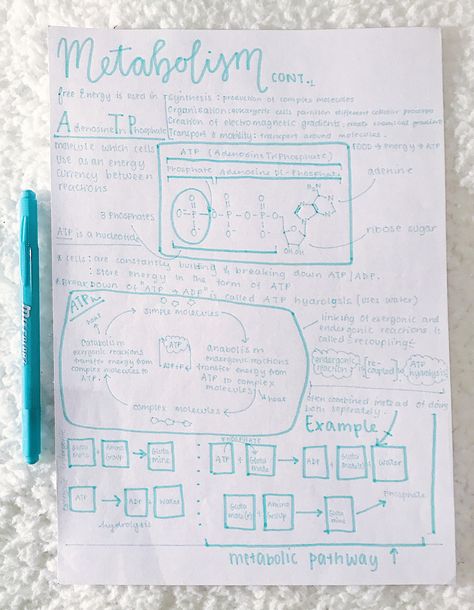 Metabolism CONT.
free Energy is used in synthesis: production of complex molecules
Organisation: eukaryotic cells partition different cellular processes
Creation of electromagnetic gradients:
Transport & mobility: transport around molecules.
Adenosine TriPhosphate
molecule which cells
use as an energy
currency between
reactions
ATP (Adenosine TriPhosphate)
Phosphate Adenosine Di-Phosphate
FOOD → Energy → ATP
adenine
3 Phosphates
ribose sugar
ATP is a nucleotide
cells: are constantly building & breaking down ATP/ADP.
: store energy in the form of ATP
Breakdown of "ATP → ADP" is called ATP hydrolysis (uses water)
ATP
simple molecules
heat
catabolism
exergonic reactions
transfer energy from
complex molecules to
ATP.
ATP
ADP+Pi
anabolism
endergonic reactions
transfer energy from
ATP to complex
molecules
heat
complex molecules
linking of exergonic and
endergonic reactions is
called "recoupling"
endergonic reaction
[re-coupled to]
ATP hydrolysis
often combined instead of doing
both seperately.
Example
Amino Group → Gluta mine
ATP → ADP + Water
hydrolysis
phosphate
ATP + Gluta mate → ADP + Gluta mate(P) + Water
Gluta mate(P) + Amino Group → Gluta mine
Phosphate
metabolic pathway ↑